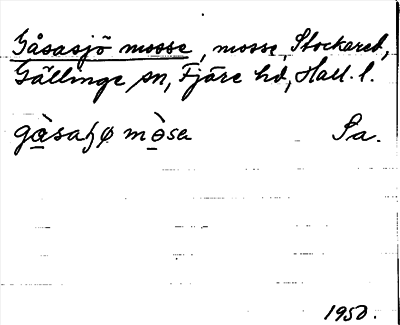 Gåsasjö mosse, mosse, Stockared,
Gällinge sn, Fjäre hd, Hall. l.
gàsaꞕø mòsa Sa.
1950.